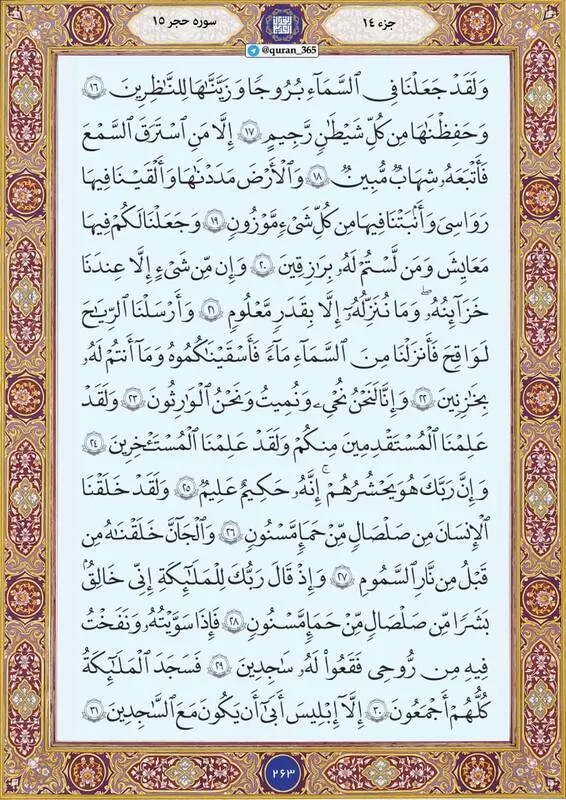 جزء ١٤
سوره حجر ١٥
@quran_365
وَلَقَدْ جَعَلْنَا فِي السَّمَاءِ بُرُوجًا وَزَيَّنَّاهَا لِلنَّاظِرِينَ ١٦
وَحَفِظْنَاهَا مِن كُلِّ شَيْطَانٍ رَّجِيمٍ ١٧ إِلَّا مَنِ اسْتَرَقَ السَّمْعَ
فَأَتْبَعَهُ شِهَابٌ مُّبِينٌ ١٨ وَالْأَرْضَ مَدَدْنَاهَا وَأَلْقَيْنَا فِيهَا
رَوَاسِيَ وَأَنبَتْنَا فِيهَا مِن كُلِّ شَيْءٍ مَّوْزُونٍ ١٩ وَجَعَلْنَا لَكُمْ فِيهَا
مَعَايِشَ وَمَن لَّسْتُمْ لَهُ بِرَازِقِينَ ٢٠ وَإِن مِّن شَيْءٍ إِلَّا عِندَنَا
خَزَائِنُهُ وَمَا نُنَزِّلُهُ إِلَّا بِقَدَرٍ مَّعْلُومٍ ٢١ وَأَرْسَلْنَا الرِّيَاحَ
لَوَاقِحَ فَأَنزَلْنَا مِنَ السَّمَاءِ مَاءً فَأَسْقَيْنَاكُمُوهُ وَمَا أَنتُمْ لَهُ
بِخَازِنِينَ ٢٢ وَإِنَّا لَنَحْنُ نُحْيِي وَنُمِيتُ وَنَحْنُ الْوَارِثُونَ ٢٣ وَلَقَدْ
عَلِمْنَا الْمُسْتَقْدِمِينَ مِنكُمْ وَلَقَدْ عَلِمْنَا الْمُسْتَأْخِرِينَ ٢٤
وَإِنَّ رَبَّكَ هُوَ يَحْشُرُهُمْ ۚ إِنَّهُ حَكِيمٌ عَلِيمٌ ٢٥ وَلَقَدْ خَلَقْنَا
الْإِنسَانَ مِن صَلْصَالٍ مِّنْ حَمَإٍ مَّسْنُونٍ ٢٦ وَالْجَانَّ خَلَقْنَاهُ مِن
قَبْلُ مِن نَّارِ السَّمُومِ ٢٧ وَإِذْ قَالَ رَبُّكَ لِلْمَلَائِكَةِ إِنِّي خَالِقٌ
بَشَرًا مِّن صَلْصَالٍ مِّنْ حَمَإٍ مَّسْنُونٍ ٢٨ فَإِذَا سَوَّيْتُهُ وَنَفَخْتُ
فِيهِ مِن رُّوحِي فَقَعُوا لَهُ سَاجِدِينَ ٢٩ فَسَجَدَ الْمَلَائِكَةُ
كُلُّهُمْ أَجْمَعُونَ ٣٠ إِلَّا إِبْلِيسَ أَبَىٰ أَن يَكُونَ مَعَ السَّاجِدِينَ ٣١
٢٦٣